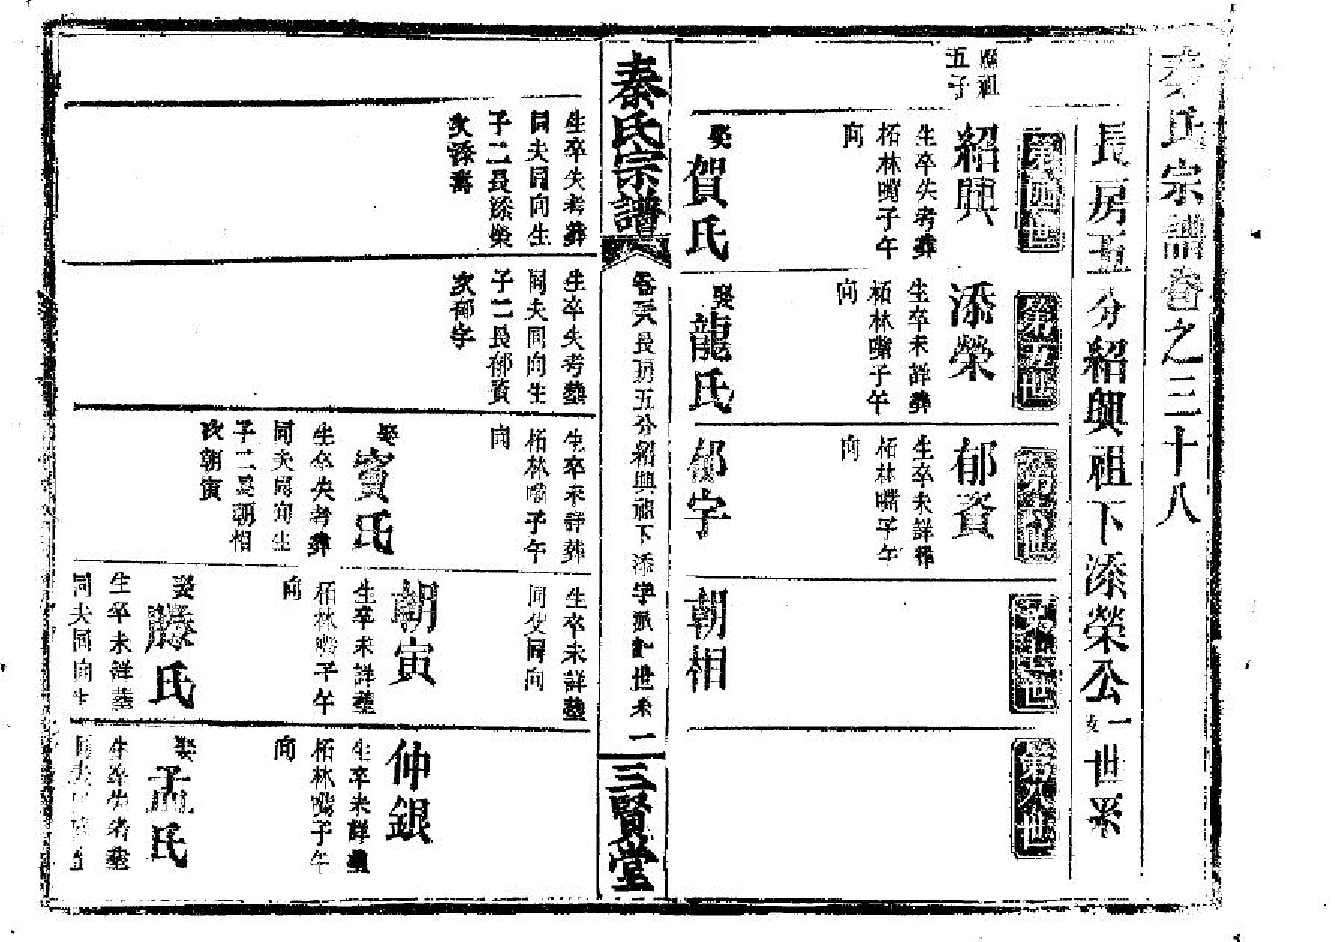 秦氏宗譜卷之三十八
長房五分紹興祖下添榮公一支世系
第四世
應祖
五子
紹興
生卒失考葬
柘林嘴子午
向
娶賀氏
第五世
添榮
生卒未詳葬
柘林嘴子午
向
娶龍氏
第六世
郁資
生卒未詳葬
柘林嘴子午
向
郁字
第七世
朝相
第八世
秦氏宗譜
卷三十八長房五分紹興祖下添字派和世系 一
三賢堂
生卒失考葬
同夫同向生
子二長添榮
次添壽
生卒失考塟
同夫同向生
子二長郁資
次郁字
生卒未詳葬
柘林嘴子午
向
娶竇氏
生卒失考葬
同夫同向生
子二長朝相
次朝寅
生卒未詳塟
同父同向
朝寅
生卒未詳塟
柘林嘴子午
向
娶滕氏
生卒未詳塟
同夫同向生
仲銀
生卒未詳塟
柘林嘴子午
向
娶孟氏
生卒失考塟
同夫同向生